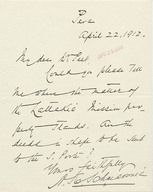 Pera
April 22, 1912.
My dear Mr. Peet,
Could you please tell
me where the matter of
the Catholic Mission pro-
perty stands. Are the
deeds in shape to be sent
to the S. Porte?
Yours faithfully